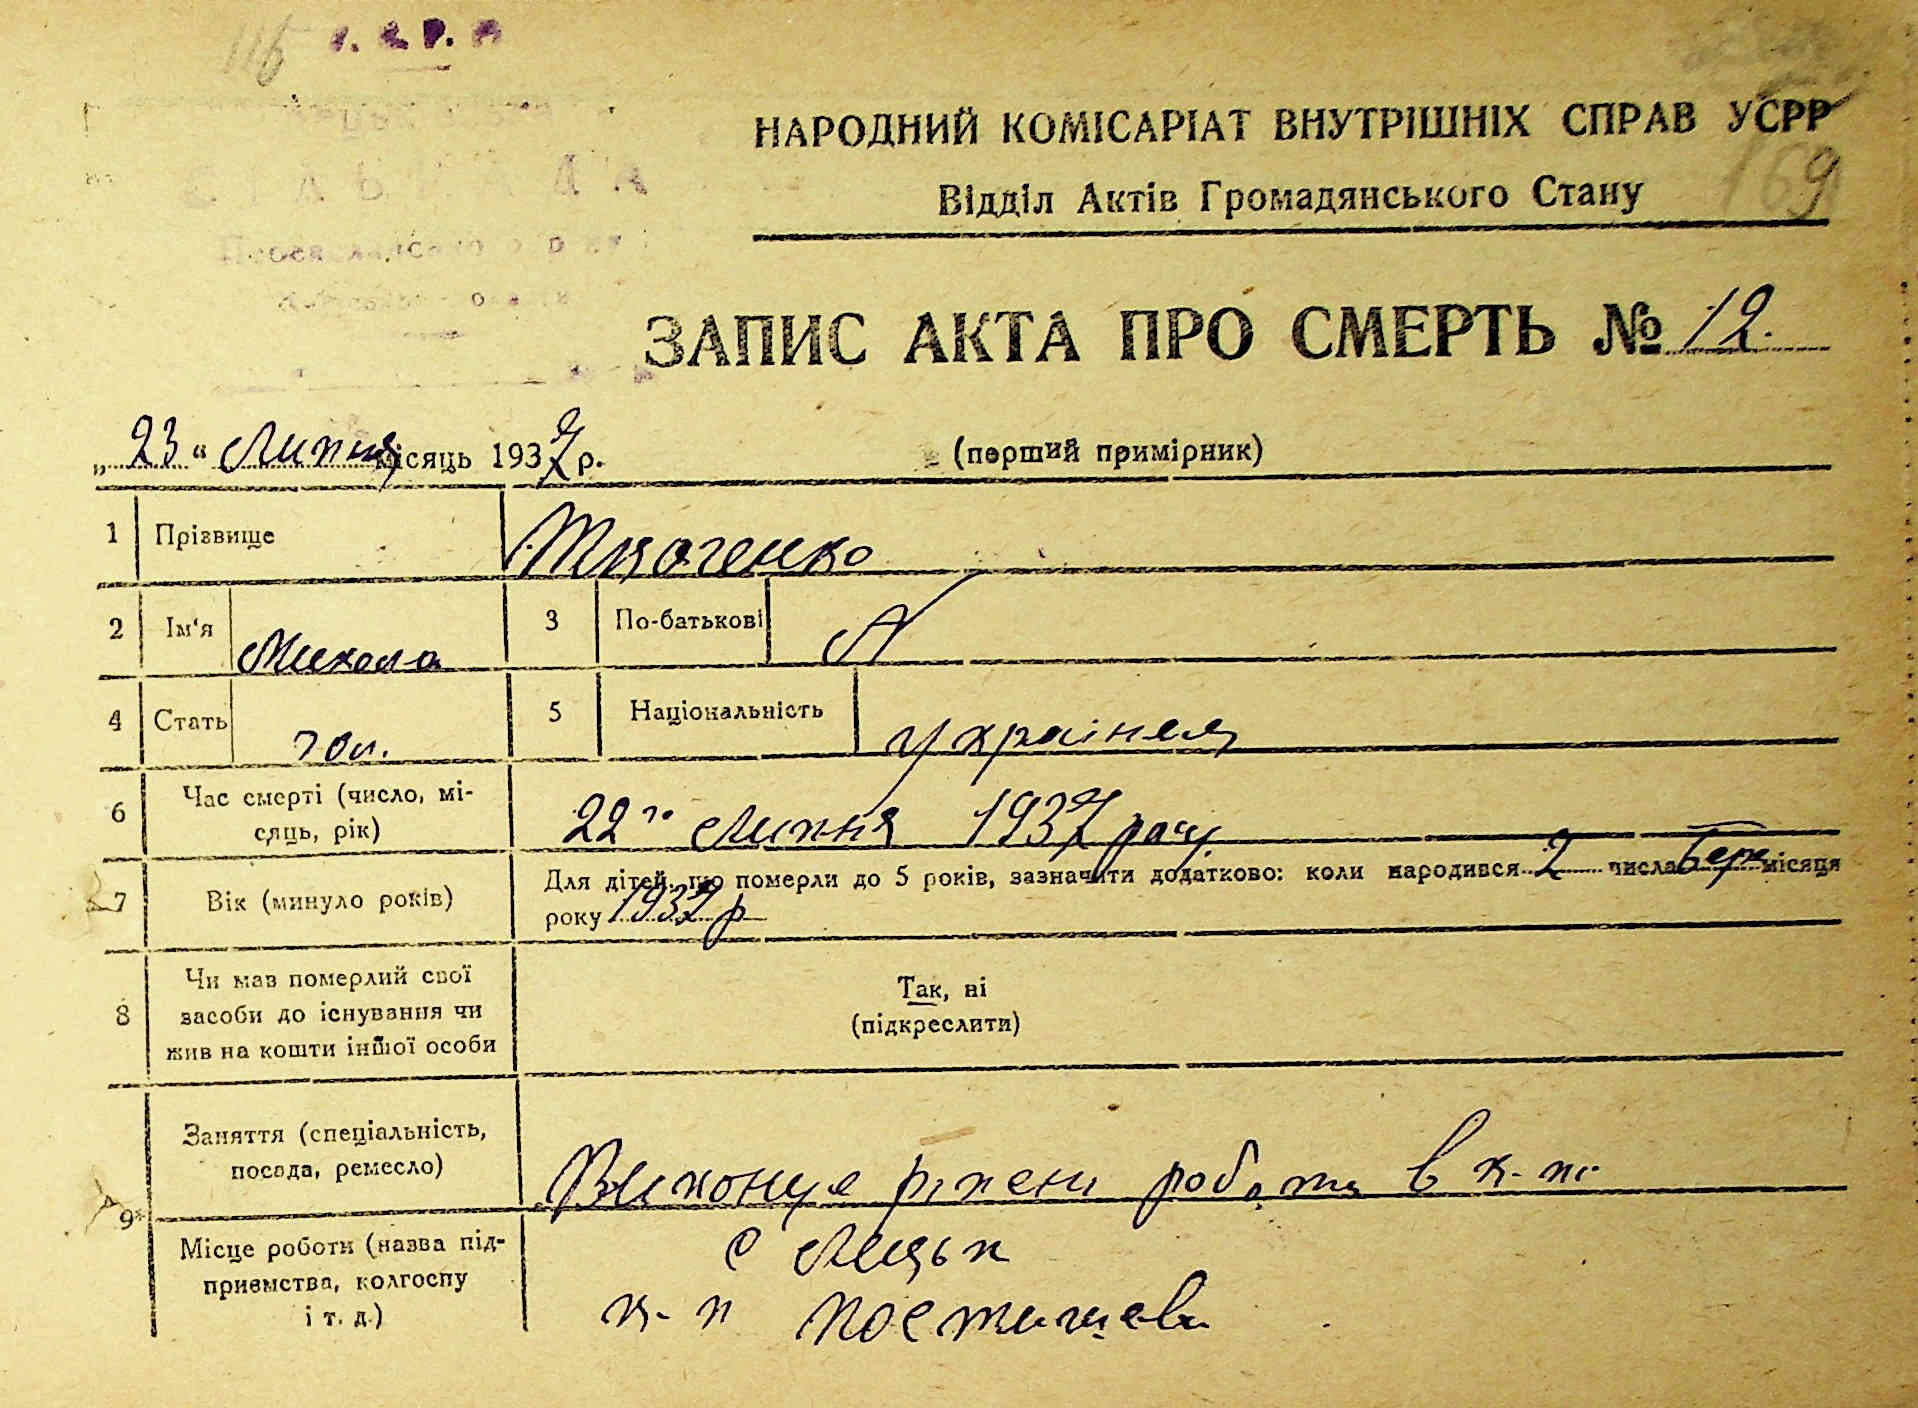 116
У. С. Р. Р.
НАРОДНИЙ КОМІСАРІАТ ВНУТРІШНІХ СПРАВ УСРР
169
Відділ Актів Громадянського Стану
ЗАПИС АКТА ПРО СМЕРТЬ № 12.
„23“ Липня місяць 1937 р. (перший примірник)
1 Прізвище Ткаченко
2 Ім'я Микола 3 По-батькові А
4 Стать чол. 5 Національність українец
6 Час смерті (число, мі-
сяць, рік) 22го Липня 1937 року
7 Вік (минуло років) Для дітей, що померли до 5 років, зазначити додатково: коли народився 2 числа Бер місяця
року 1937 р
8 Чи мав померлий свої
засоби до існування чи
жив на кошти іншої особи
Так, ні
(підкреслити)
9 Заняття (спеціальність,
посада, ремесло) Виконує ріжені робота в к-пі
Місце роботи (назва під-
приємства, колгоспу
і т. д.)
с
к-п Постишева